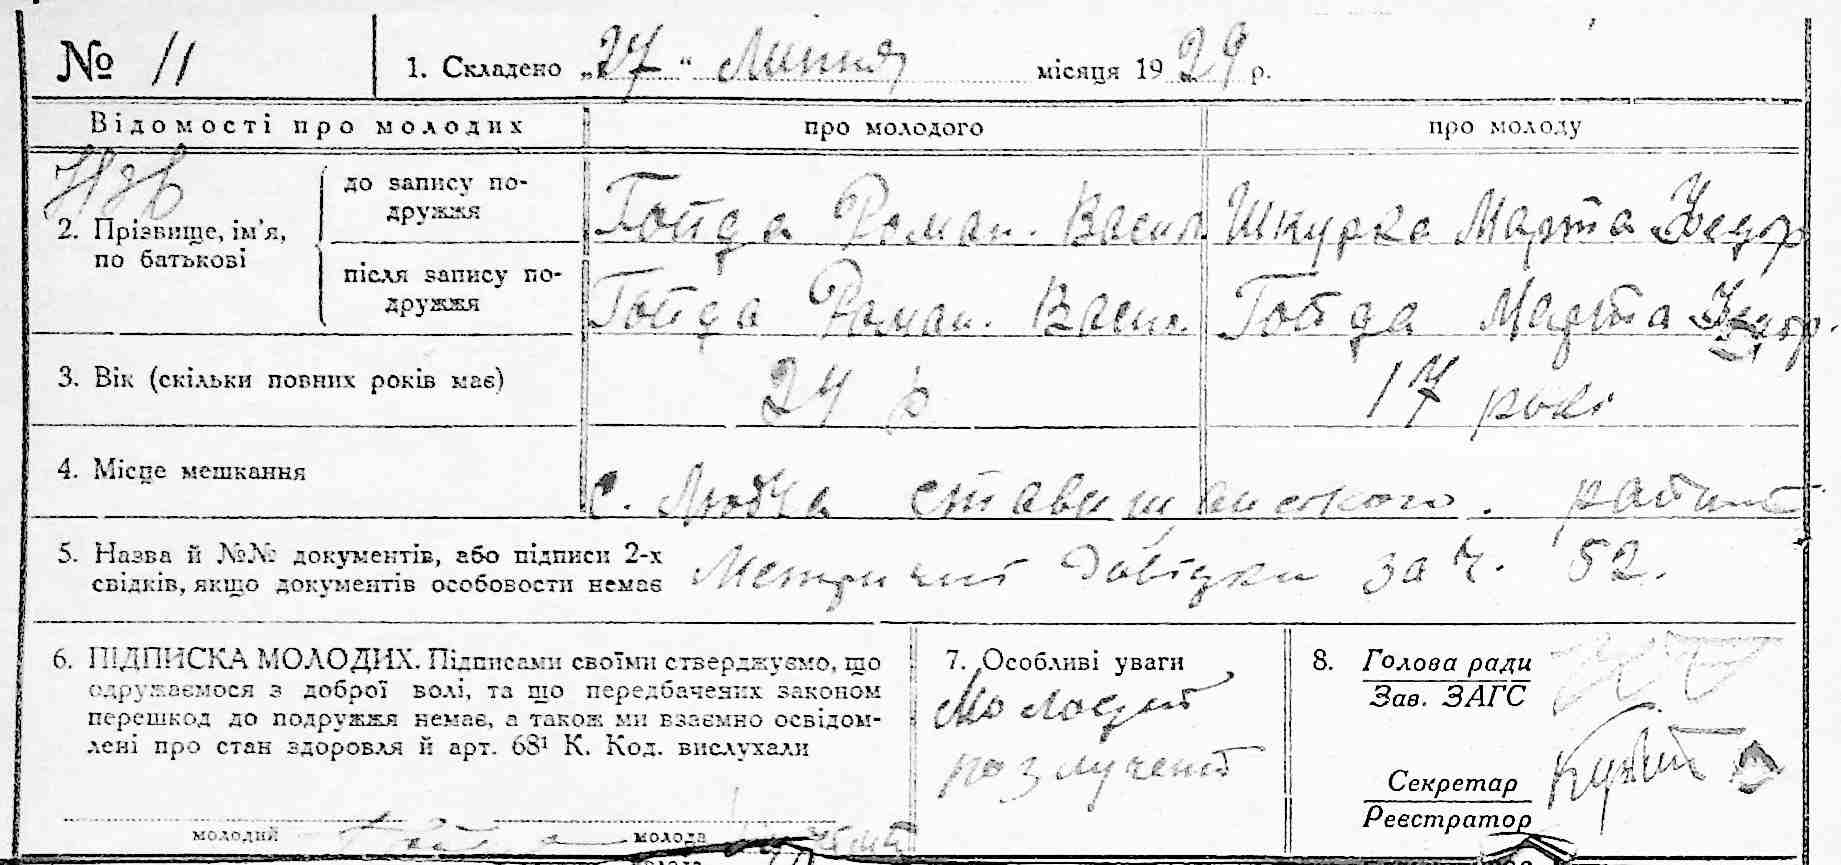 № 11
1. Складено „27“ Липня місяця 1929 р.
Відомості про молодих
про молодого
про молоду
2. Прізвище, ім'я, по батькові
до запису по-
дружжя
Гойда Роман. Васил. Шкурка Марта Федор
після запису по-
дружжя
Гойда Роман. Васил. Гойда Марта Федор.
3. Вік (скільки повних років має)
24 р
17 рокі
4. Місце мешкання
с. Любча ставищанського. району
5. Назва й №№ документів, або підписи 2-х
свідків, якщо документів особовости немає
Метричні Довідки за ч. 52.
6. ПІДПИСКА МОЛОДИХ. Підписами своїми стверджуємо, що
одружаємося з доброї волі, та що передбачених законом
перешкод до подружжя немає, а також ми взаємно освідом-
лені про стан здоровля й арт. 68¹ К. Код. вислухали
молодий
молода
7. Особливі уваги
Молодий
розлучений
8. Голова ради
Зав. ЗАГС
Секретар
Реєстратор